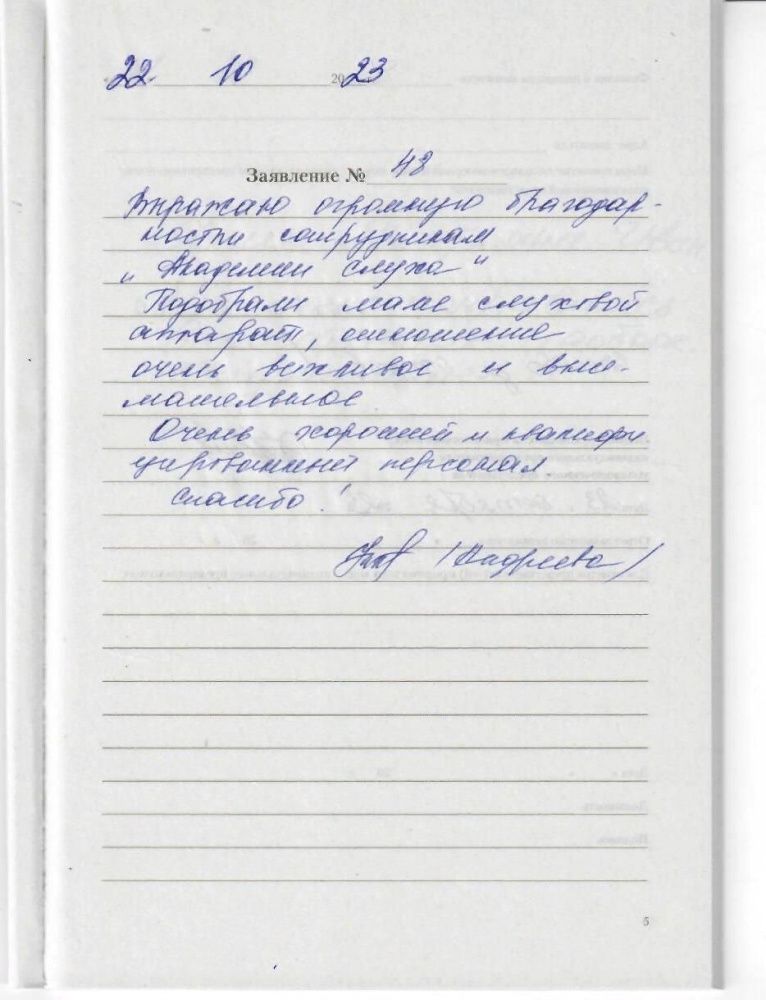 22 10 2023
Заявление № 48
Выражаю огромную благодар-
ности сотрудникам
„Академии слуха"
Подобрали маме слуховой
аппарат, отношение
очень вежливое и вни-
мательное
Очень хороший и квалифи
цированный персонал
спасибо!
/Андреева/
5